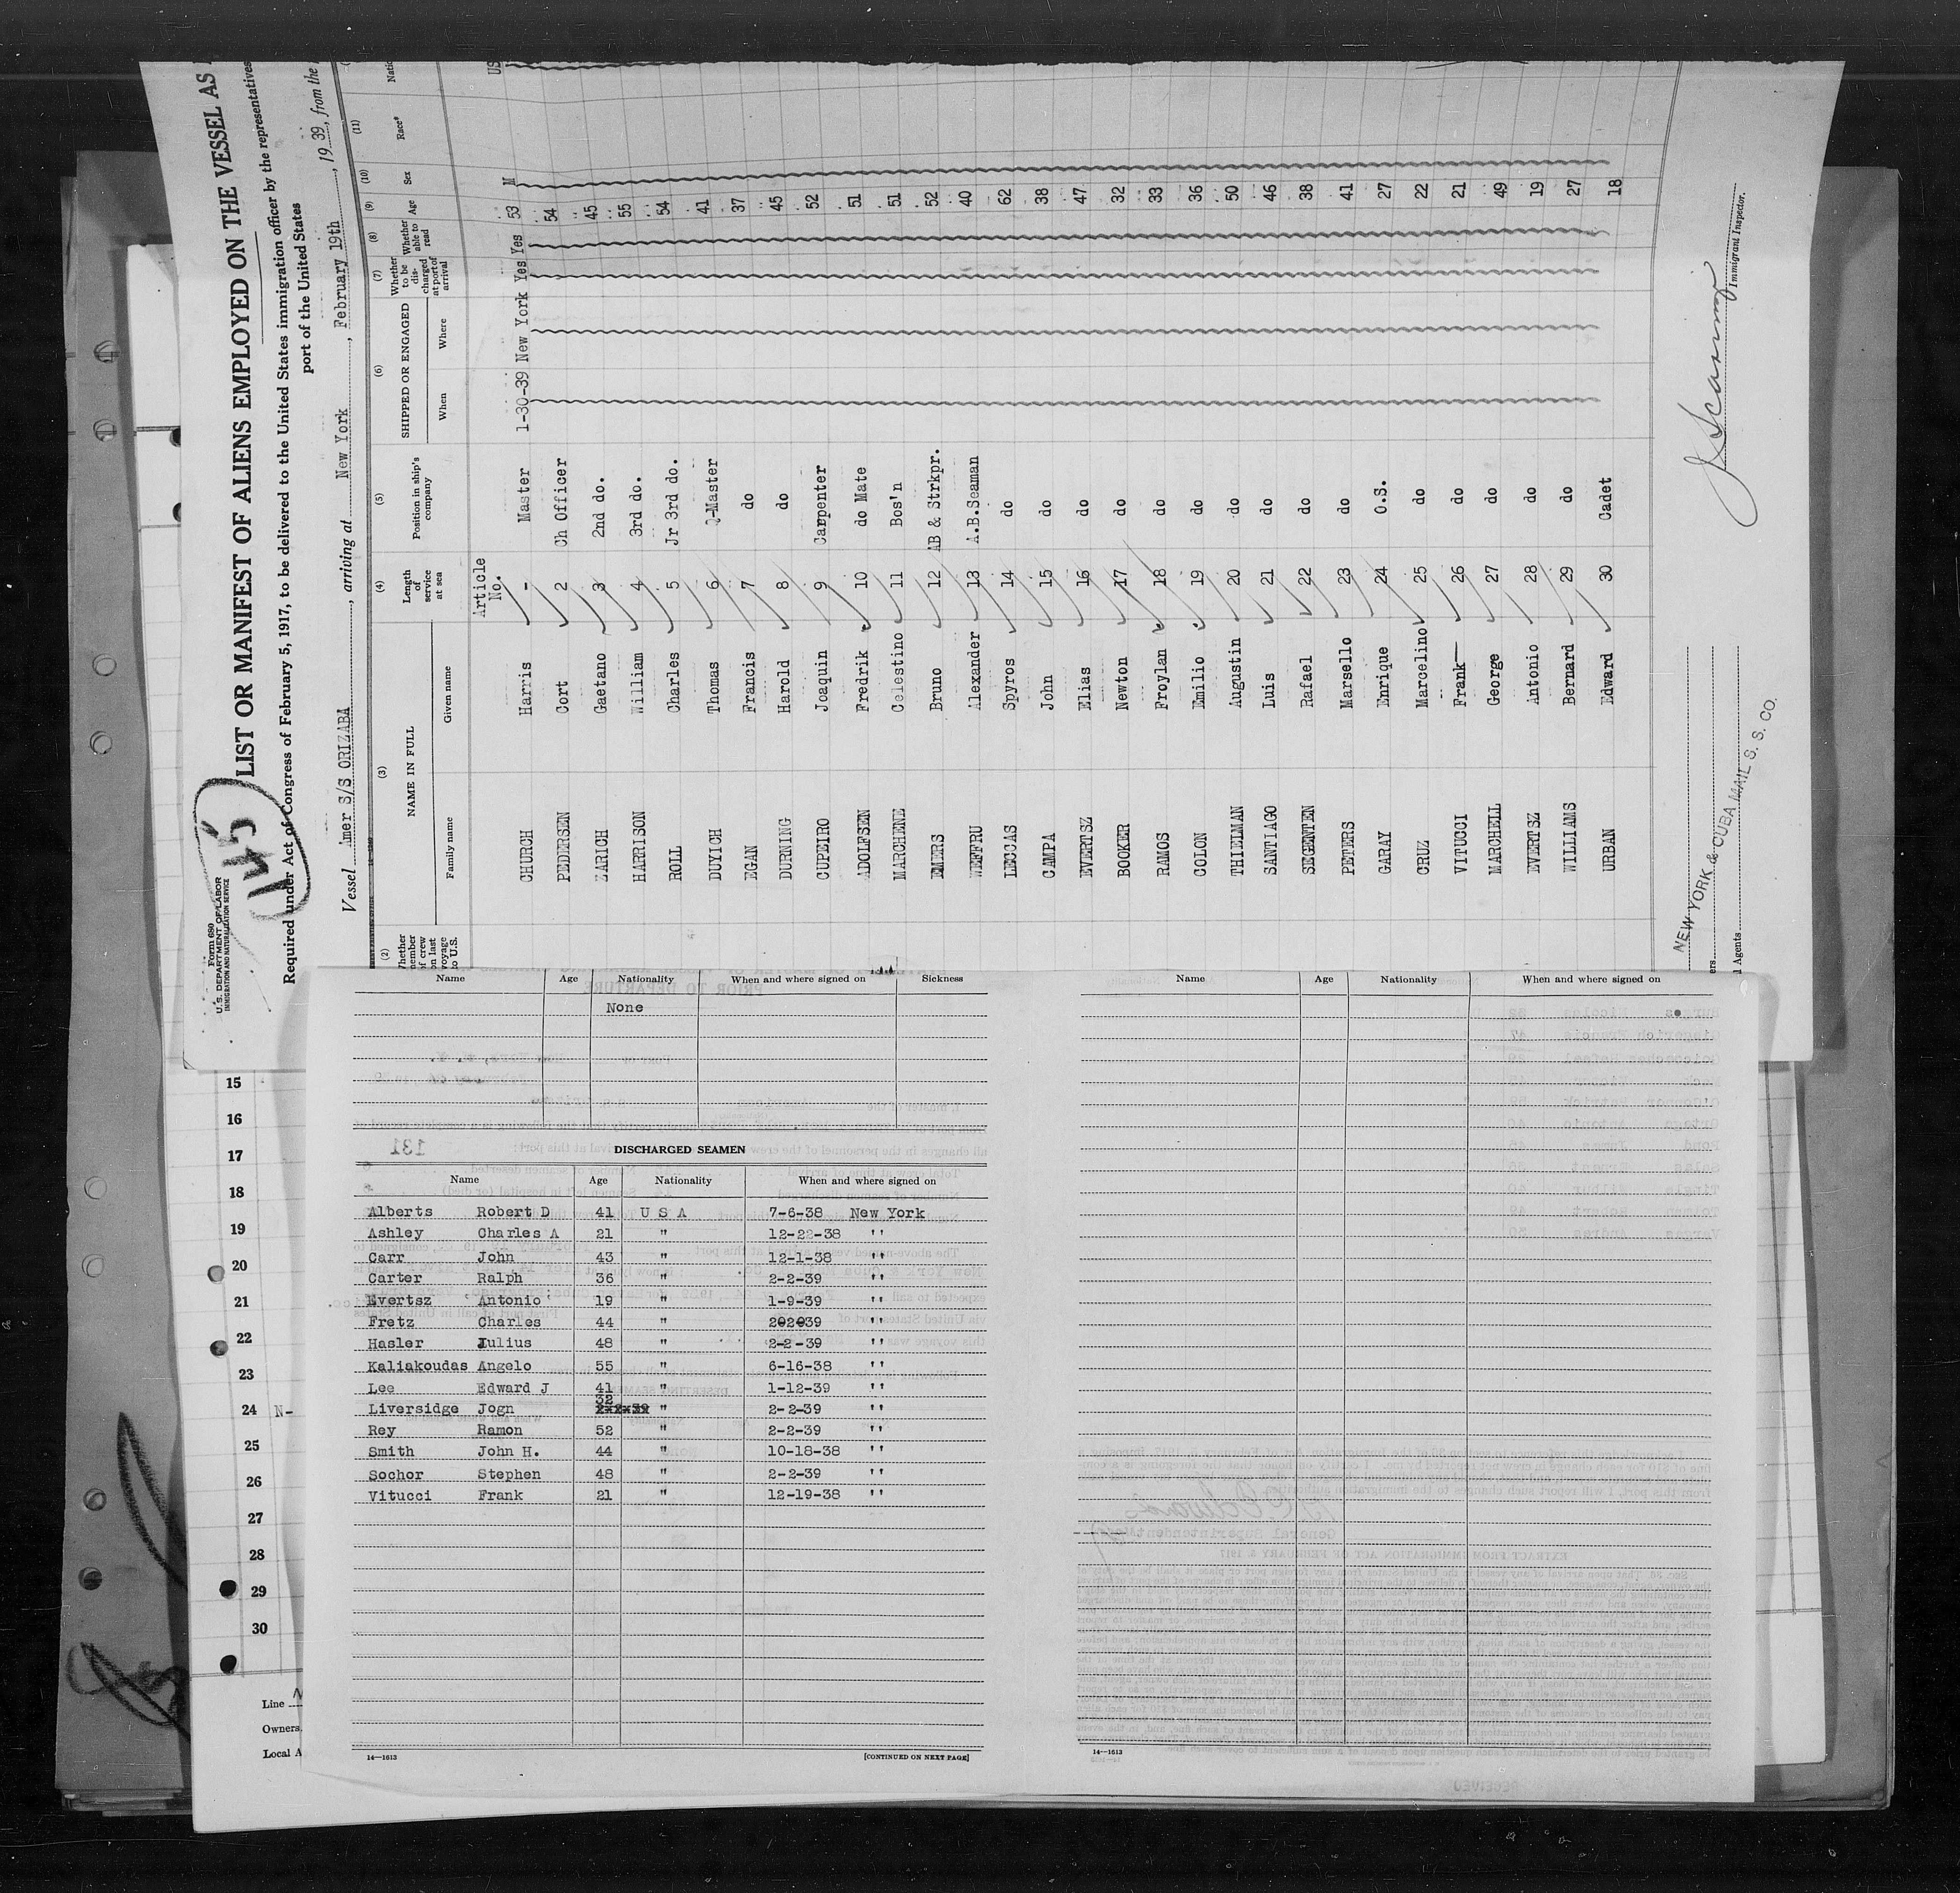 Form 680
U.S. DEPARTMENT OF LABOR
IMMIGRATION AND NATURALIZATION SERVICE
145
LIST OR MANIFEST OF ALIENS EMPLOYED ON THE VESSEL AS
Required under Act of Congress of February 5, 1917, to be delivered to the United States immigration officer by the representatives
port of the United States
Vessel Amer S/S ORIZABA, arriving at New York, February 19th, 1939, from the
(2) (3) (4) (5) (6) (7) (8) (9) (10) (11)
NAME IN FULL
Family name Given name
Length of service at sea
Position in ship's company
SHIPPED OR ENGAGED
When Where
Whether to be discharged at port of arrival
Whether able to read
Age Sex Race*
Article No.
CHURCH Harris - Master 1-30-39 New York Yes Yes 53 M US
PEDERSEN Cort 2 Ch Officer 54
ZARICH Gaetano 3 2nd do. 45
HARRISON William 4 3rd do. 55
ROLL Charles 5 Jr 3rd do. 54
DUYICH Thomas 6 Q-Master 41
EGAN Francis 7 do 37
DURNING Harold 8 do 45
CUPEIRO Joaquin 9 Carpenter 52
ADOLFSEN Fredrik 10 do Mate 51
MARCHENE Celestino 11 Bos'n 51
EMERS Bruno 12 AB & Strkpr. 52
WEFFRU Alexander 13 A.B.Seaman 40
LECCAS Spyros 14 do 62
CAMPA John 15 do 38
EVERTSZ Elias 16 do 47
BOOKER Newton 17 do 32
RAMOS Froylan 18 do 33
COLON Emilio 19 do 36
THIELMAN Augustin 20 do 50
SANTIAGO Luis 21 do 46
SEGENTEN Rafael 22 do 38
PETERS Marsello 23 do 41
GARAY Enrique 24 O.S. 27
CRUZ Marcelino 25 do 22
VITUCCI Frank 26 do 21
MARCHELL George 27 do 49
EVERTSZ Antonio 28 do 19
WILLIAMS Bernard 29 do 27
URBAN Edward 30 Cadet 18
NEW YORK & CUBA MAIL S. S. CO.
Agents
Immigrant Inspector.
Name Age Nationality When and where signed on Sickness
None
DISCHARGED SEAMEN
Name Age Nationality When and where signed on
Alberts Robert D 41 U S A 7-6-38 New York
Ashley Charles A 21 " 12-22-38 ''
Carr John 43 " 12-1-38 ''
Carter Ralph 36 " 2-2-39 ''
Evertsz Antonio 19 " 1-9-39 ''
Fretz Charles 44 " 202039 ''
Hasler Julius 48 " 2-2-39 ''
Kaliakoudas Angelo 55 " 6-16-38 ''
Lee Edward J 41 " 1-12-39 ''
Liversidge Jogn 32 " 2-2-39 ''
Rey Ramon 52 " 2-2-39 ''
Smith John H. 44 " 10-18-38 ''
Sochor Stephen 48 " 2-2-39 ''
Vitucci Frank 21 " 12-19-38 ''
14—1613 [CONTINUED ON NEXT PAGE]
Name Age Nationality When and where signed on
14—1613
15
16
17
18
19
20
21
22
23
24 N-
25
26
27
28
29
30
Line
Owners
Local A